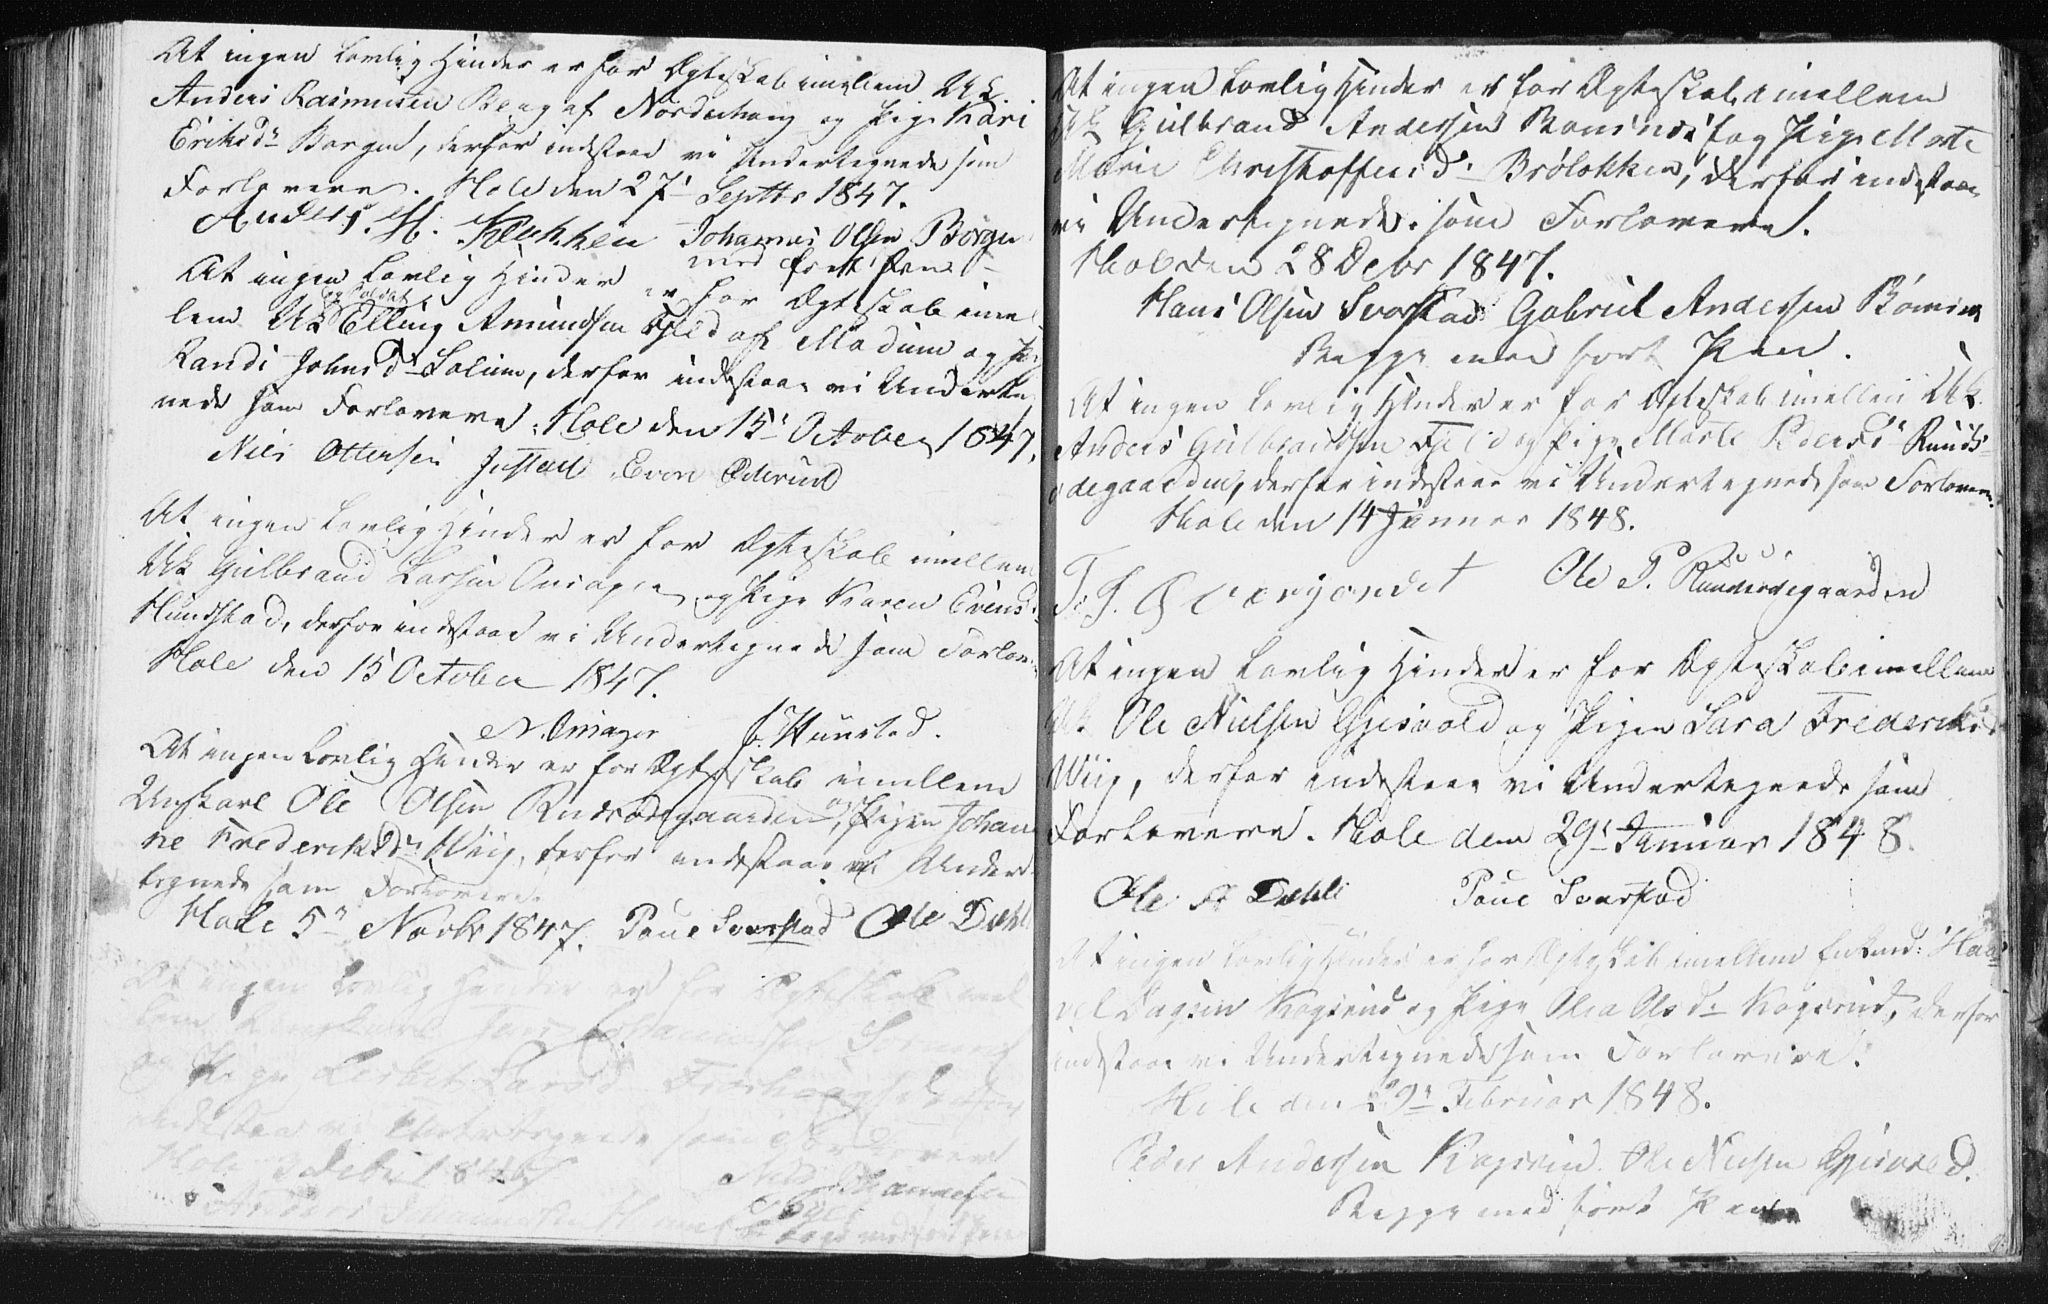 At ingen Lovlig Hinder er for Ægteskab imellem Uk
Anders Rasmusen Berg af Norderhaug og Pige Kari
Eriksdr Borgen, derfor indestaae vi Undertegnede som
Forlovere. Hole den 27' Septbr 1847.
Anders H. Klekken Johannes Olsen Borgen
med ført Pen
At ingen Lovlig Hinder er for Ægteskab imel
og Soldat
lem Uk Elling Amundsen Fjeld af Modum og Pig
Randi Johnsdr Solum, derfor indestaae vi Underteg
nede som Forlovere. Hole den 15' October 1847.
Nils Ottersen Justad Even Øderud
At ingen Lovlig Hinder er for Ægteskab imellem
Uk Gulbrand Larsen Onsager og Pige Karen Evensd
Hundstad, derfor indestaae vi Undertegnede som Forlov
Hole den 15 October 1847.
N. Onsager J. Hunstad.
At ingen Lovlig Hinder er for Ægteskab imellem
Ungkarl Ole Olsen Rudsødegaarden og Pigen Johan
ne Frederiksdr Wiig, derfor indestaae vi Under
tegnede som Forlovere.
Hole 5te Novbr 1847. Poul Svarstad Ole Dæhli
At ingen Lovlig Hinder er for Ægteskab imel
lem Ungkarl Johannessen
og Pige Larsd derfor
indestaa vi Undertegnede som Forlovere
Hole 3 Debr 1847 Nils Hannesen
Anders Johannesen
Begge med ført Pen
At ingen Lovlig Hinder er for Ægteskab imellem
Uk Gulbrand Andersen Bønsnæs og Pige Marte
Marie Christoffersd: Brølokken, derfor indestaae
vi Undertegnede som Forlovere.
Hole den 28 Debr 1847.
Hans Olsen Svarstad Gabriel Andersen Bønsnæs
Begge med ført Pen.
At ingen Lovlig Hinder er for Ægteskab imellem Uk
Anders Gulbrandsen Fjeld og Pige Marte Pedersdr Ruuds
ødegaarden, derfor indestaae vi Undertegnede som Forlovere.
Hole den 14 Januar 1848.
Ole P. Ruudsødegaarden
At ingen Lovlig Hinder er for Ægteskab imellem
Uk Ole Nielsen Gjesvold og Pigen Sara Frederiksd
Wiig, derfor indestaae vi Undertegnede som
Forlovere. Hole den 29' Januar 1848.
Ole A Dæhli Poul Svarstad
At ingen Lovlig Hinder er for Ægteskab imellem Enkmd: Haa
Kogsrud og Pige Olea Olsdr Kogsrud, derfor
indestaae vi Undertegnede som Forlovere.
Hole den 29' Februar 1848.
Peder Andersen Kogsrud Ole Nielsen Gjesvold.
Begge med ført Pen